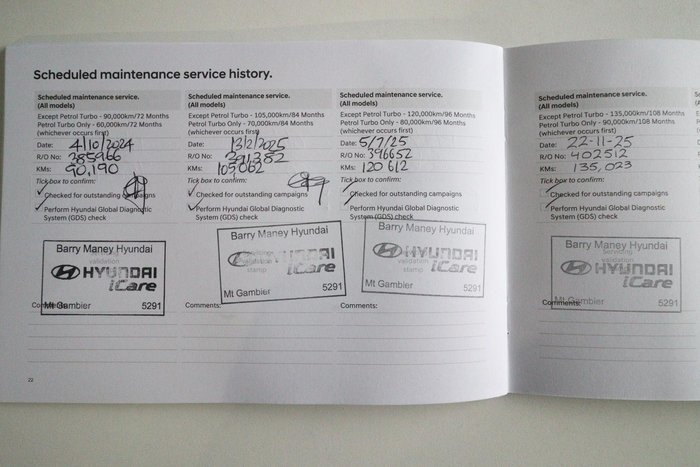 Scheduled maintenance service history.
Scheduled maintenance service.
(All models)
Except Petrol Turbo - 90,000km/72 Months
Petrol Turbo Only - 60,000km/72 Months
(whichever occurs first)
Date: 4/10/2024
R/O No: 385966
KMs: 90,190
Tick box to confirm:
Checked for outstanding campaigns
Perform Hyundai Global Diagnostic
System (GDS) check
Barry Maney Hyundai
validation
HYUNDAI
iCare
Mt Gambier 5291
Comments:
Scheduled maintenance service.
(All models)
Except Petrol Turbo - 105,000km/84 Months
Petrol Turbo Only - 70,000km/84 Months
(whichever occurs first)
Date: 13/2/2025
R/O No: 391382
KMs: 105,062
Tick box to confirm:
Checked for outstanding campaigns
Perform Hyundai Global Diagnostic
System (GDS) check
Barry Maney Hyundai
Servicing
validation
stamp
HYUNDAI
iCare
Mt Gambier 5291
Comments:
Scheduled maintenance service.
(All models)
Except Petrol Turbo - 120,000km/96 Months
Petrol Turbo Only - 80,000km/96 Months
(whichever occurs first)
Date: 5/7/25
R/O No: 396652
KMs: 120 612
Tick box to confirm:
Checked for outstanding campaigns
Perform Hyundai Global Diagnostic
System (GDS) check
Barry Maney Hyundai
validation
stamp
HYUNDAI
iCare
Mt Gambier 5291
Comments:
22
Scheduled maintenance service.
(All models)
Except Petrol Turbo - 135,000km/108 Months
Petrol Turbo Only - 90,000km/108 Months
(whichever occurs first)
Date: 22-11-25
R/O No: 402512
KMs: 135,023
Tick box to confirm:
Checked for outstanding campaigns
Perform Hyundai Global Diagnostic
System (GDS) check
Barry Maney Hyundai
Servicing
validation
HYUNDAI
iCare
Mt Gambier 5291
Comments: